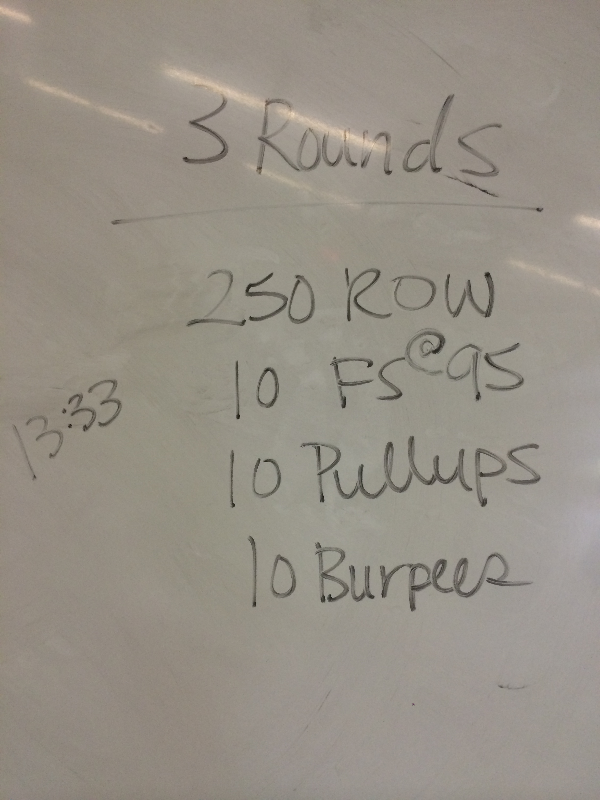 3 Rounds
250 ROW
10 FS@95
13:33
10 Pullups
10 Burpees